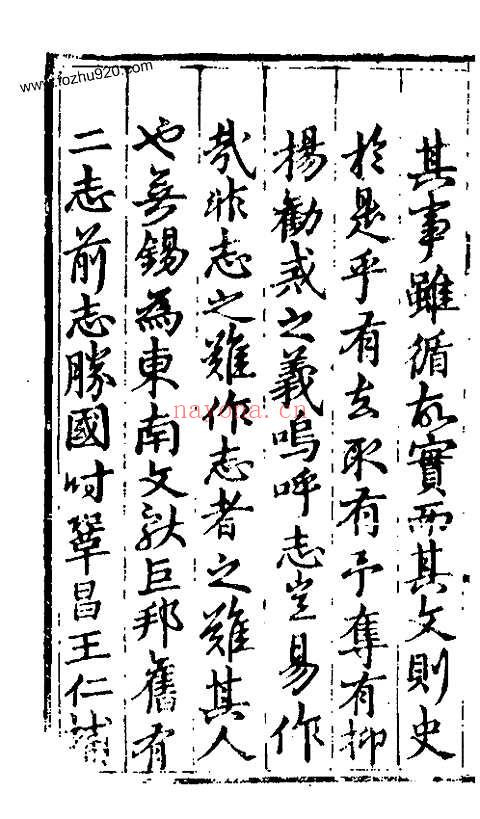 其事雖循故實而其文則史
於是乎有去取有予奪有抑
揚勸戒之義嗚呼志豈易作
哉非志之難作志者之難其人
也無錫為東南文獻巨邦舊有
二志前志勝國時鞏昌王仁輔
www.fozhu920.com
nayona.cn